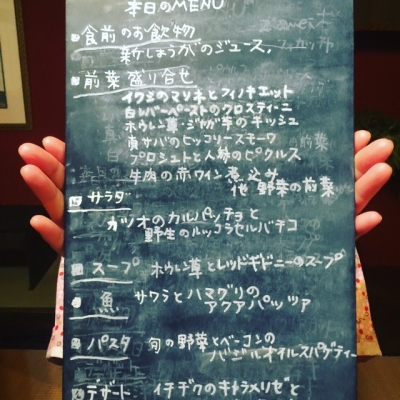 本日のMENU
食前のお飲物
新しょうがのジュース,
前菜 盛り合せ
イワシのマリネとフィノキエット
白レバーペーストのクロスティーニ
ホウレン草・ジャガ芋のキッシュ
真サバのヒッコリースモーク
プロシュットと人参のピクルス
牛肉の赤ワイン煮込み
他 野菜の前菜
サラダ
カツオのカルパッチョと
野生のルッコラセルバチコ
スープ ホウレン草とレッドキドニーのスープ
魚 サワラとハマグリの
アクアパッツァ
パスタ 旬の野菜とベーコンの
バジルオイルスパゲティー
デザート イチヂクのキャラメリゼと